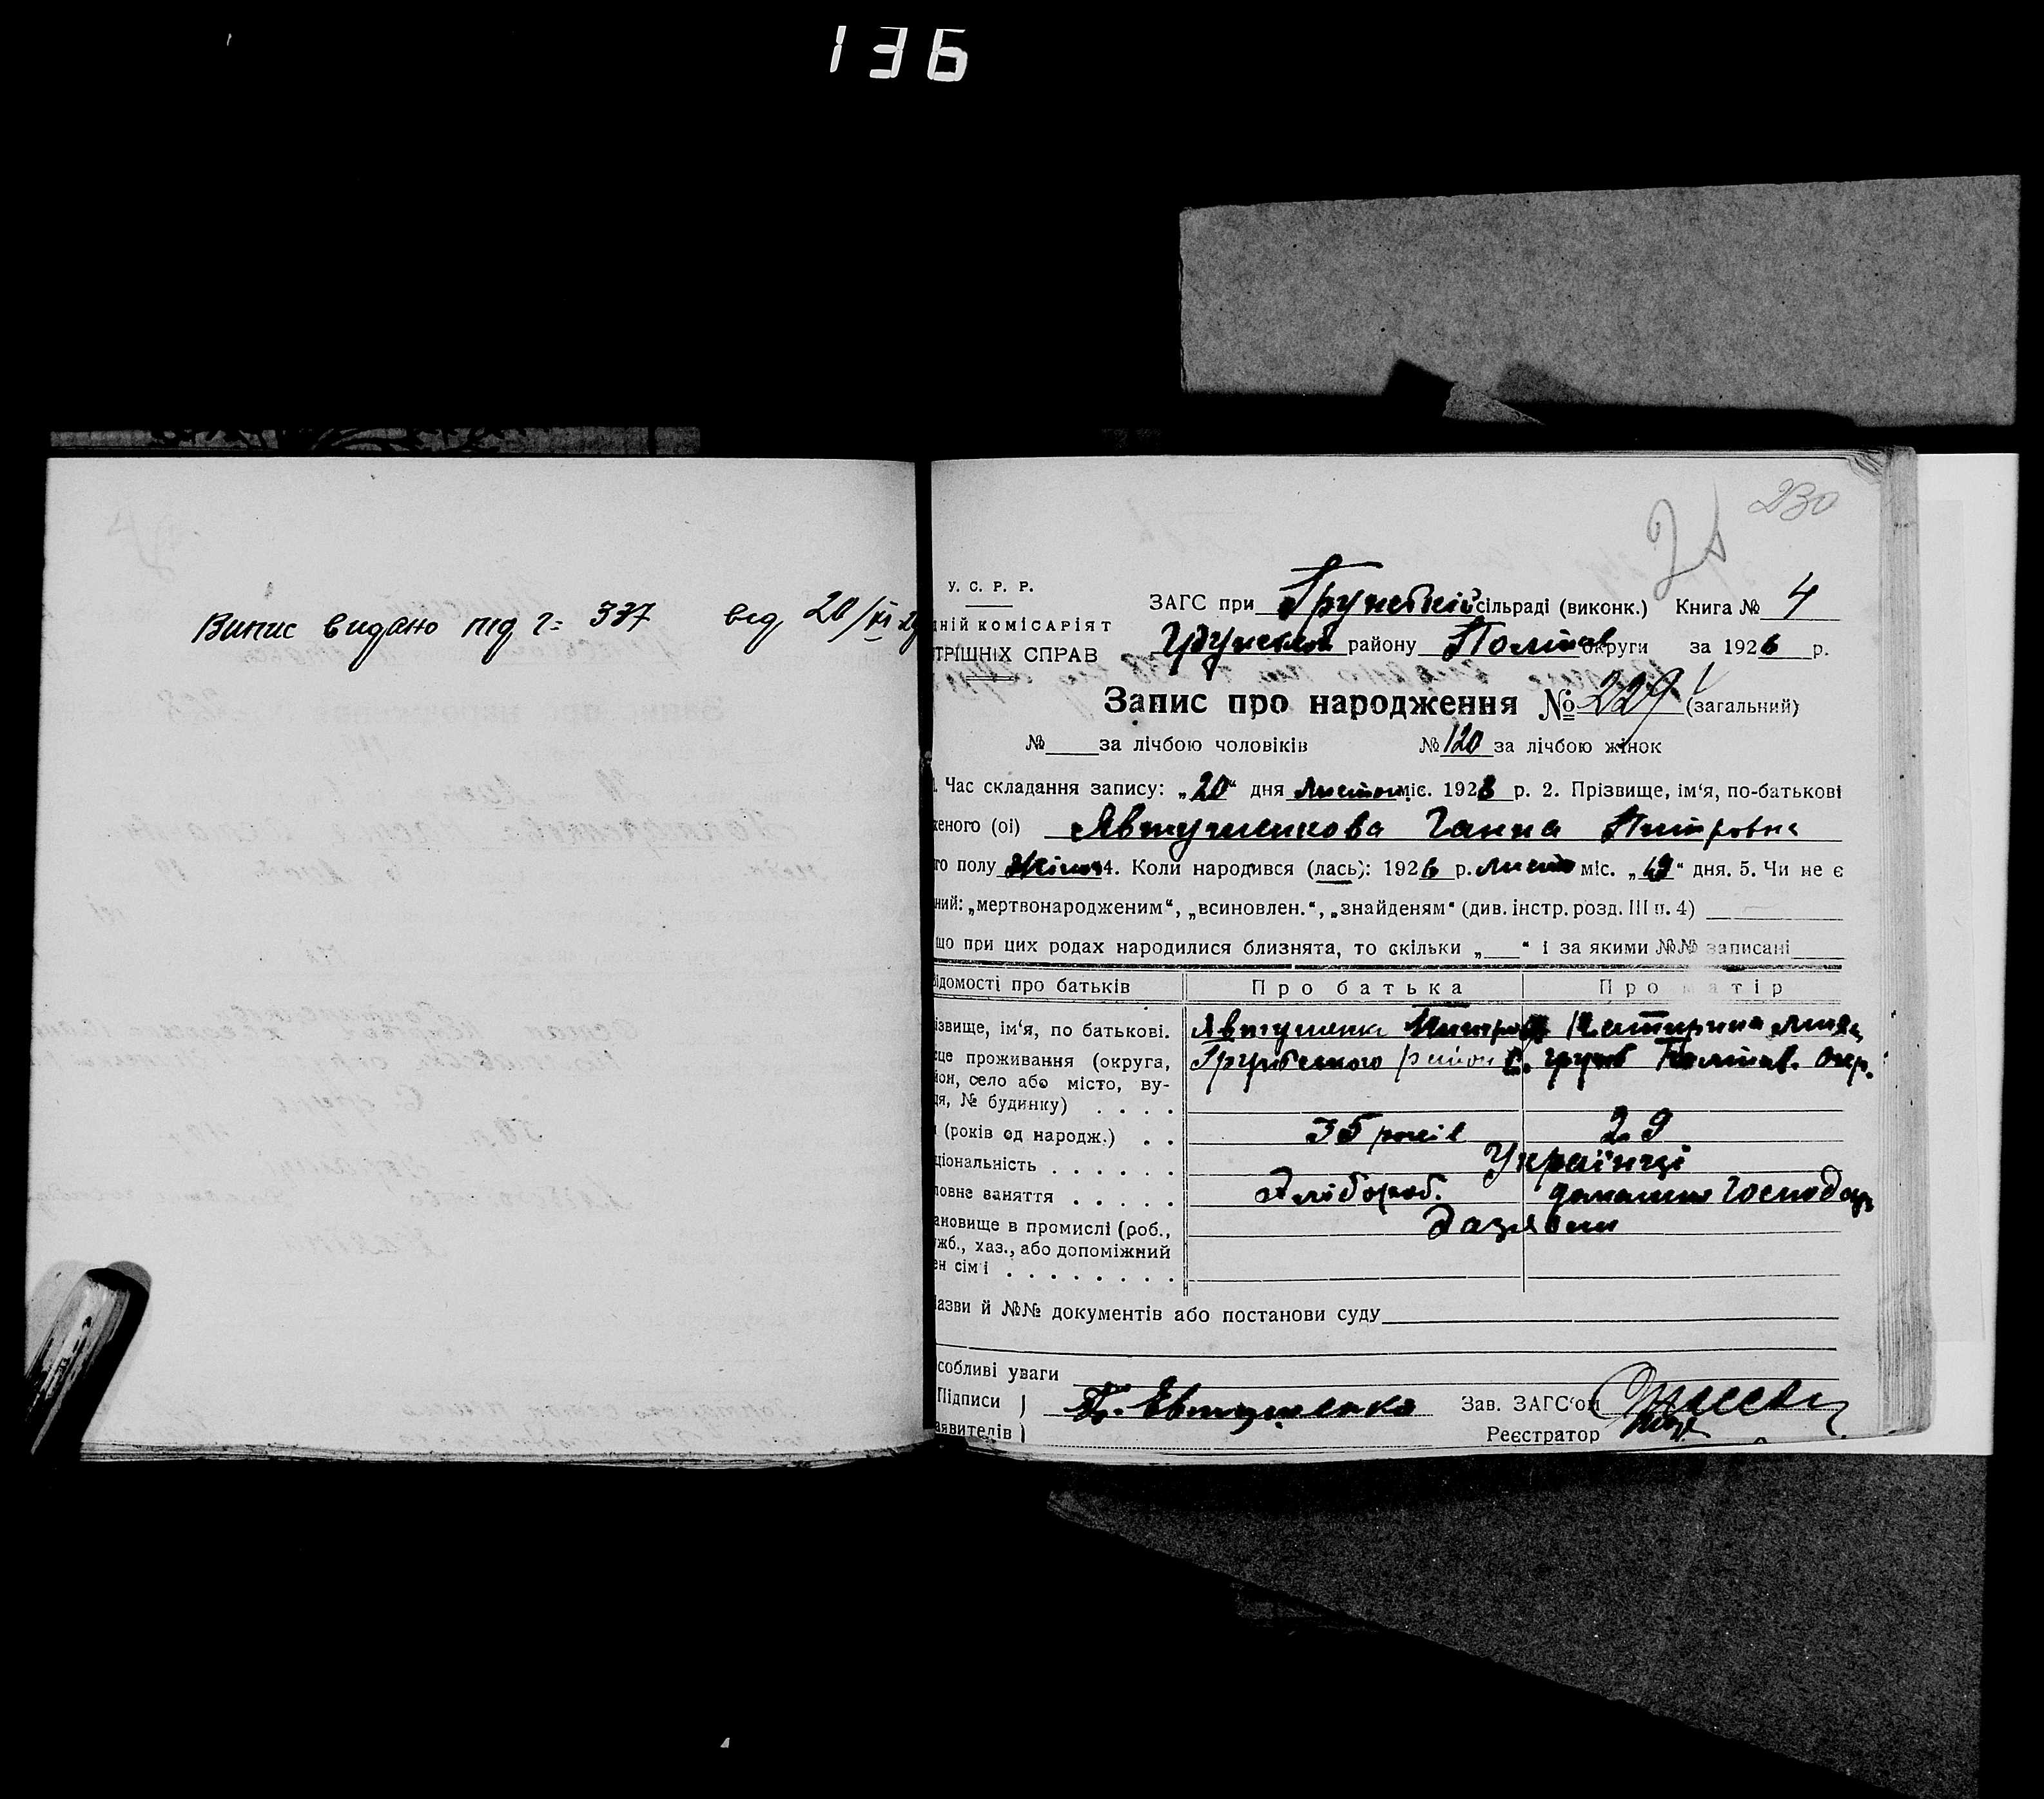 136
Випис видано під г= 337 від 20/III 29
230
У. С. Р. Р.
ЗАГС при Грунській сільраді (виконк.) Книга № 4
дній комісаріят
Грунської району Полтав округи за 1926 р.
трішніх справ
Запис про народження № 229 (загальний)
№ за лічбою чоловіків № 120 за лічбою жінок
1. Час складання запису: „20“ дня листоп міс. 1926 р. 2. Прізвище, ім‘я, по-батькові
женого (ої) Явтушенкова Ганна Питровна
го полу жіноч 4. Коли народився (лась): 1926 р. листо міс. „19“ дня. 5. Чи не є
ний: „мертвонародженим“, „всиновлен.“, „знайденям“ (див. інстр. розд. III п. 4)
що при цих родах народилися близнята, то скільки „ “ і за якими №№ записані
ідомості про батьків Про батька Про матір
ізвище, ім‘я, по батькові. Явтушенко Питро Катирина
сце проживання (округа, Грунського район с. грунь Полтав. окр.
йон, село або місто, ву-
ця, № будинку) . . . .
і (років од народж.) . . 35 років 29
ціональність . . . . . . Українці
ловне заняття . . . . . Хлібороб. домашнє господар
ановище в промислі (роб., Хазяйни
ужб., хаз., або допоміжний
ен сім‘ї . . . . . . . .
Назви й №№ документів або постанови суду
собливі уваги
Підписи Евтушенко Зав. ЗАГС‘ом
аявителів Реєстратор